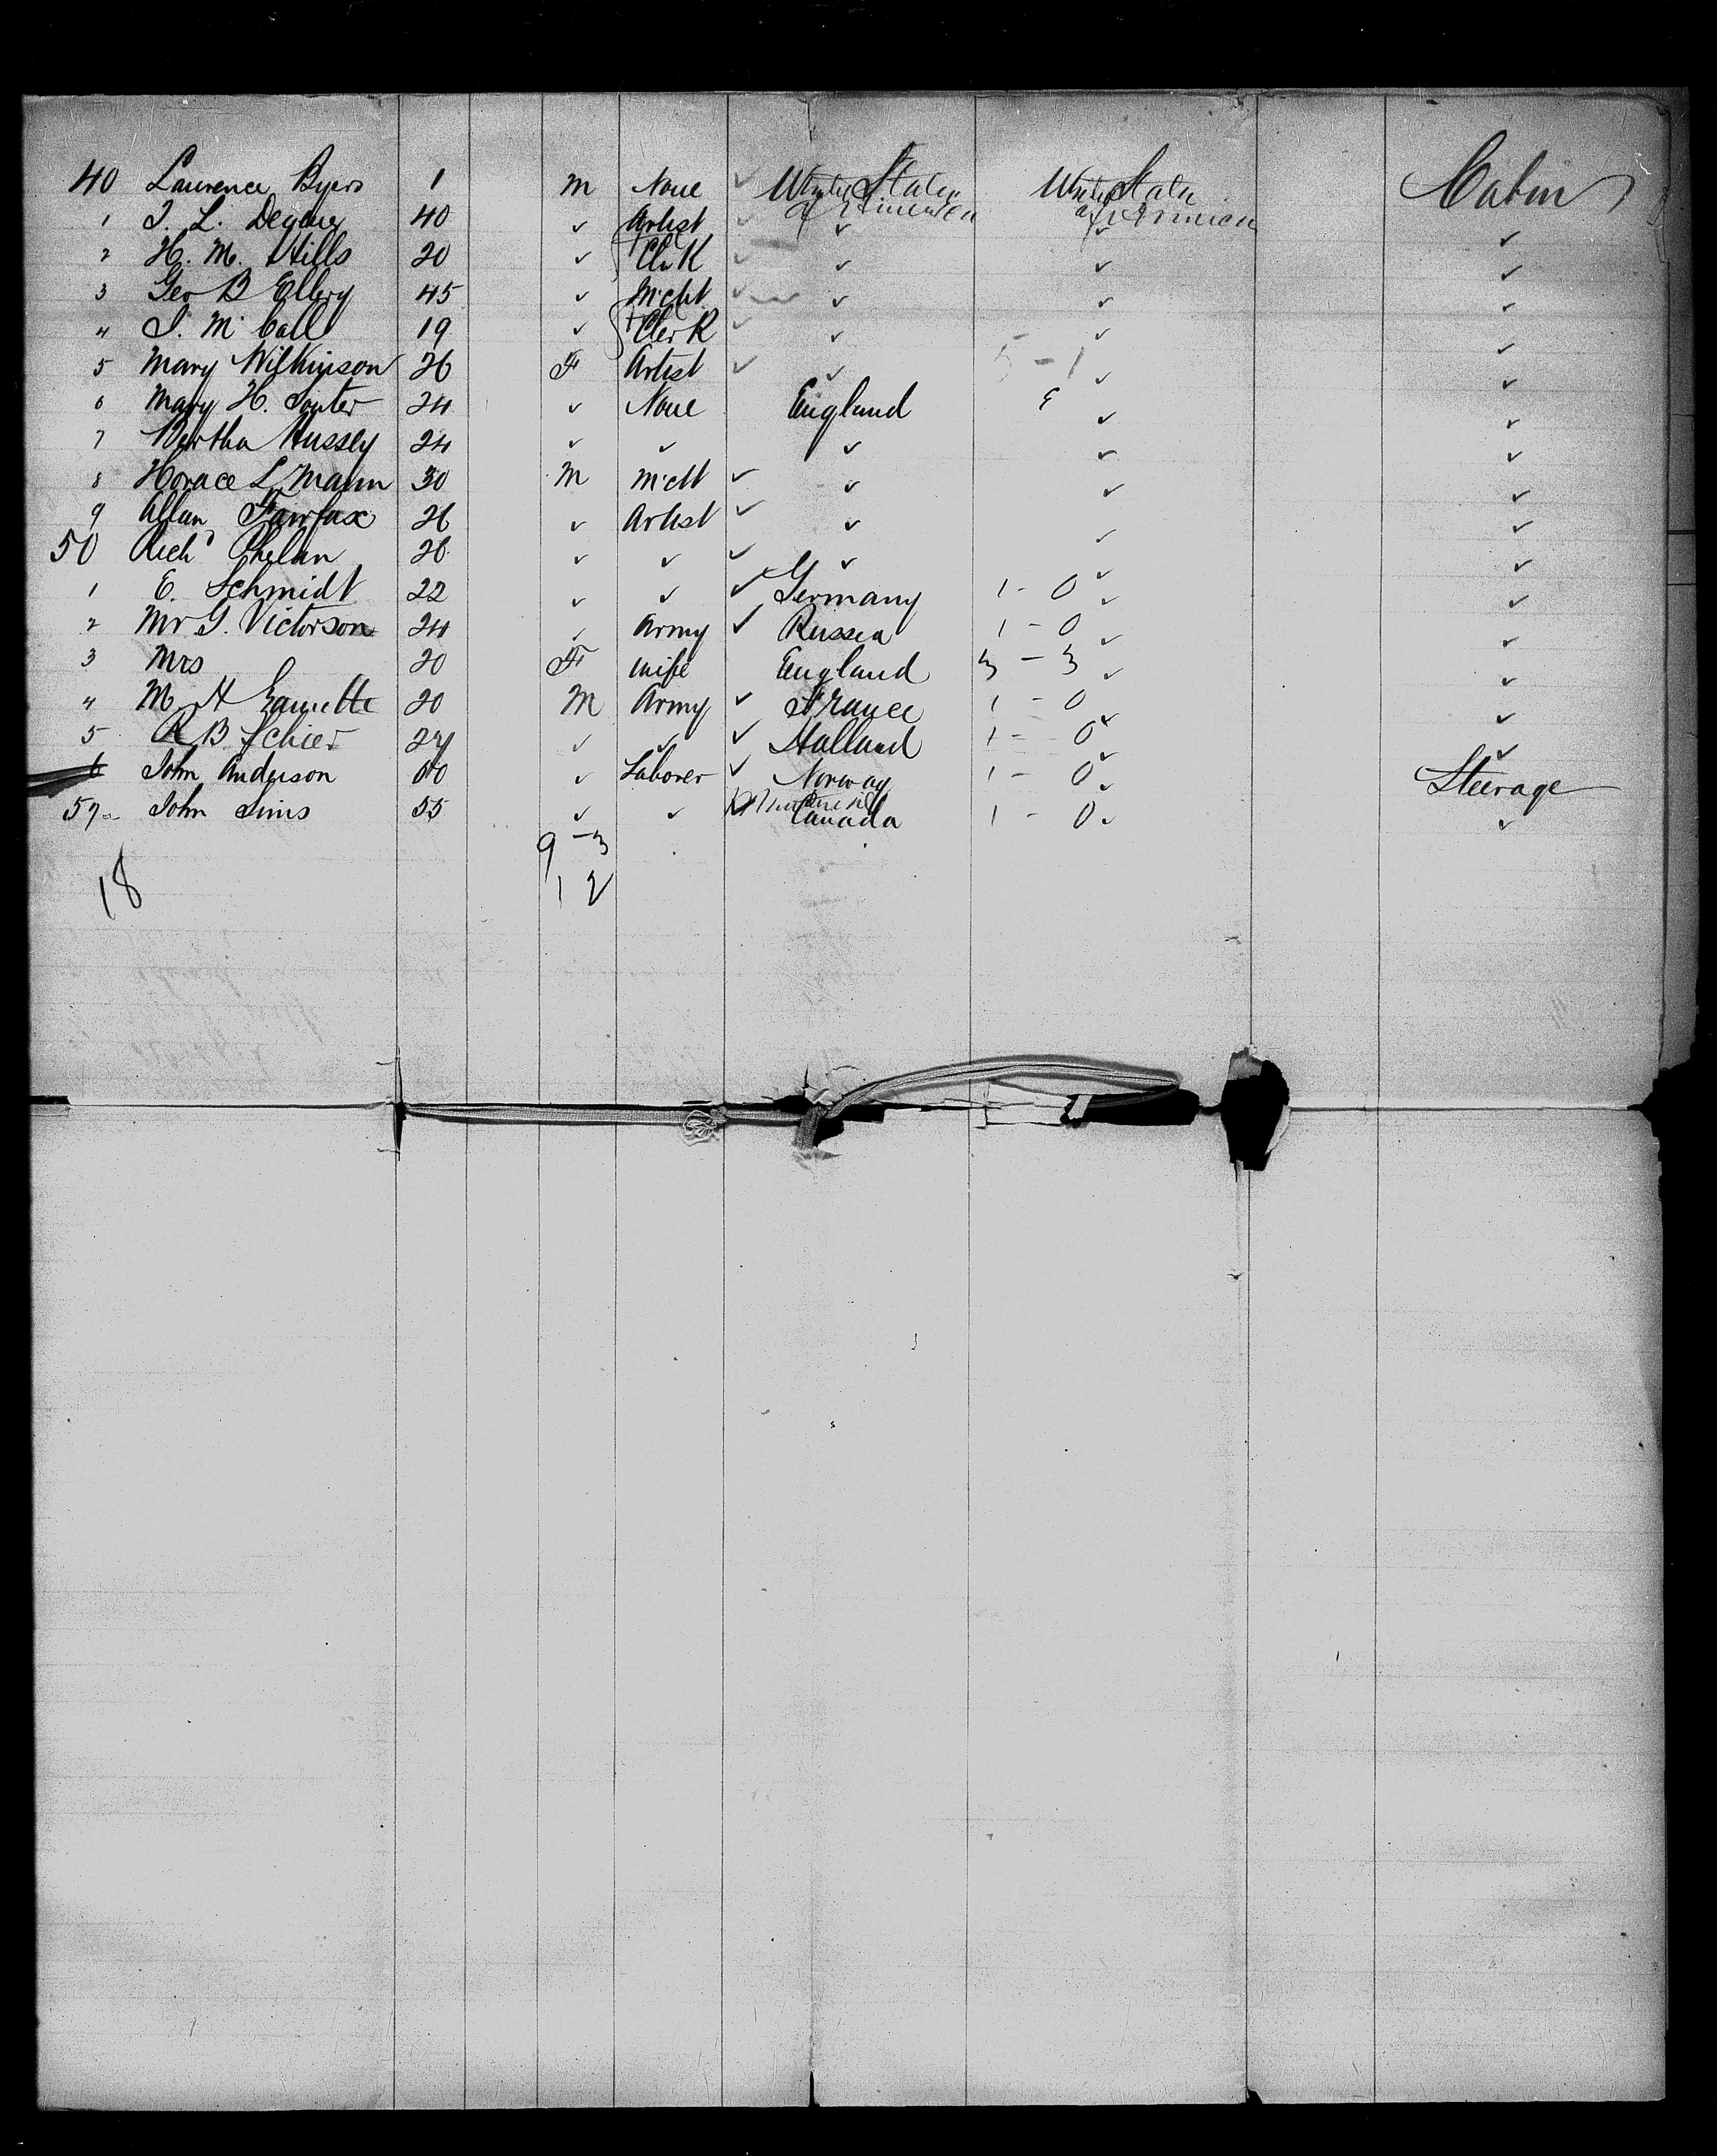 40 Laurence Byers 1 m None ✓ United States of America United States of America Cabin
1 T. L. 40 ✓ Artist ✓ ✓ ✓ ✓
2 H. M. Hills 20 ✓ Clk ✓ ✓ ✓ ✓
3 Geo B Ellery 45 ✓ Mcht ✓ ✓ ✓ ✓
4 S. M. Call 19 ✓ Clerk ✓ ✓ ✓ ✓
5 Mary Wilkinson 26 F Artist ✓ ✓ 5-1 ✓ ✓
6 Mary H. Souter 24 ✓ None England ✓ ✓
7 Bertha Hussey 24 ✓ ✓ ✓ ✓ ✓
8 Horace L Mann 30 M Mcht ✓ ✓ ✓ ✓
9 Allan Fairfax 26 ✓ Artist ✓ ✓ ✓ ✓
50 Richd Phelan 26 ✓ ✓ ✓ ✓ ✓ ✓
1 E. Schmidt 22 ✓ ✓ ✓ Germany 1 - 0 ✓ ✓
2 Mr G. Victorson 24 ✓ Army ✓ Russia 1 - 0 ✓ ✓
3 Mrs 20 F wife England 3 - 3 ✓ ✓
4 M. H 20 M Army ✓ France 1 - 0 ✓ ✓
5 R B Schier 24 ✓ ✓ ✓ Holland 1 - 0 ✓ ✓
6 John Anderson ✓ Laborer ✓ Norway 1 - 0 ✓ Steerage
57 John Sims 55 ✓ ✓ Canada 1 - 0 ✓ ✓
9 - 3
18
1 2